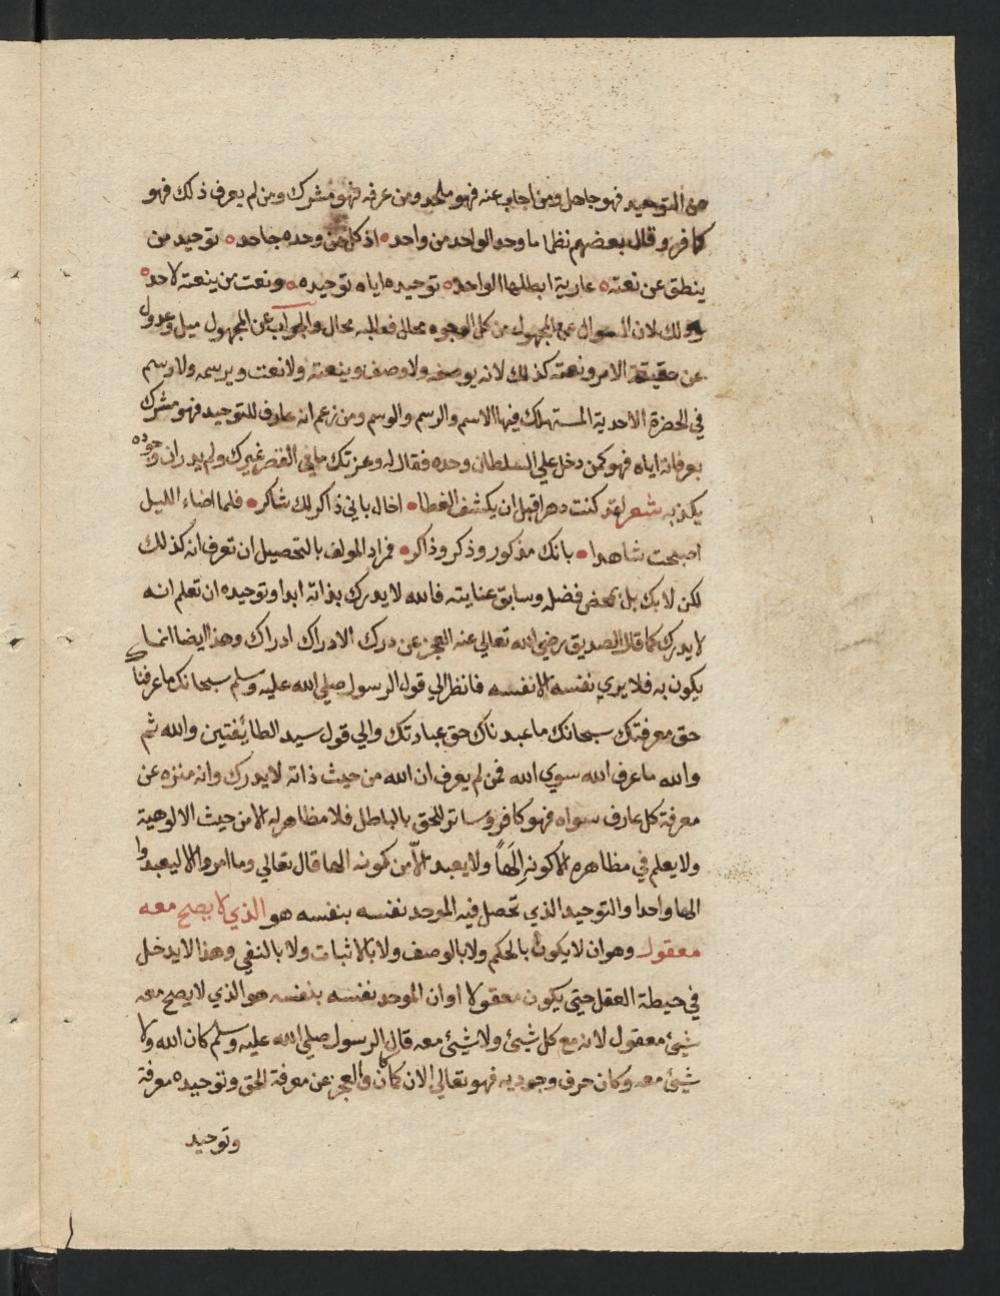 عن التوحيد فهو جاهل ومن اجاب عنه فهو ملحد ومن عرفه فهو مشرك ومن لم يعرف ذلك فهو
كافر وقال بعضهم نظما ما وحد الواحد من واحد اذ كل من وحده جاحد توحيد من
ينطق عن نعته عارية ابطلها الواحد توحيده اياه توحيده ونعت من ينعته لاحد
وذلك لان السوال عن المجهول من كل الوجوه محال فعالمه محال والجواب عن المجهول ميل وعدول
عن حقيقة الامر ونعته كذلك لانه يوصفه ولا وصف وينعته ولا نعت ويرسمه ولا رسم
في الحضرة الأحدية المستهلك فيها الاسم والرسم والوسم ومن زعم انه عارف للتوحيد فهو مشرك
بعرفانه اياه فهو كمن دخل علي السلطان وحده فقال له وعزتك ما في القصر غيرك ولم يدر ان وجوده
يكذبه شعر لقد كنت دهرا قبل ان يكشف الغطا اخال باني ذاكر لك شاكر فلما اضاء الليل
اصبحت شاهدا بانك مذكور وذكر وذاكر فمراد المولف بالتحصيل ان تعرف انه كذلك
لكن لا بك بل بمحض فضله وسابق عنايته فالله لا يدرك بذاته ابدا وتوحيده ان تعلم انه
لا يدرك كما قال الصديق رضي الله تعالي عنه العجز عن درك الادراك ادراك وهذا ايضا انما
يكون به فلا يري نفسه الا نفسه فانظر الي قول الرسول صلي الله عليه وسلم سبحانك ما عرفناك
حق معرفتك سبحانك ما عبدناك حق عبادتك والي قول سيد الطائفتين والله ثم
والله ما عرف الله سوي الله فمن لم يعرف ان الله من حيث ذاته لا يدرك وانه منزه عن
معرفة كل عارف سواه فهو كافر وساتر للحق بالباطل فلا مظاهر له الا من حيث الالوهية
ولا يعلم في مظاهره الا كونه إلَهاً ولا يعبد الّا من كونه الها قال تعالي وما امروا الا ليعبدوا
الها واحدا والتوحيد الذي تحصل فيه الموحد نفسه بنفسه هو الذي لا يصح معه
معقول وهو ان لا يكون بالحكم ولا بالوصف ولا بالاثبات ولا بالنفي وهذا لا يدخل
في حيطة العقل حتي يكون معقولا او ان الموحد نفسه بنفسه هو الذي لا يصح معه
شيئ معقول لانه مع كل شيئ ولا شيئ معه قال الرسول صلي الله عليه وسلم كان الله ولا
شيئ معه وكان حرف وجوديه فهو تعالي الان كما كان والعجز عن معرفة الحق وتوحيده معرفة
وتوحيد